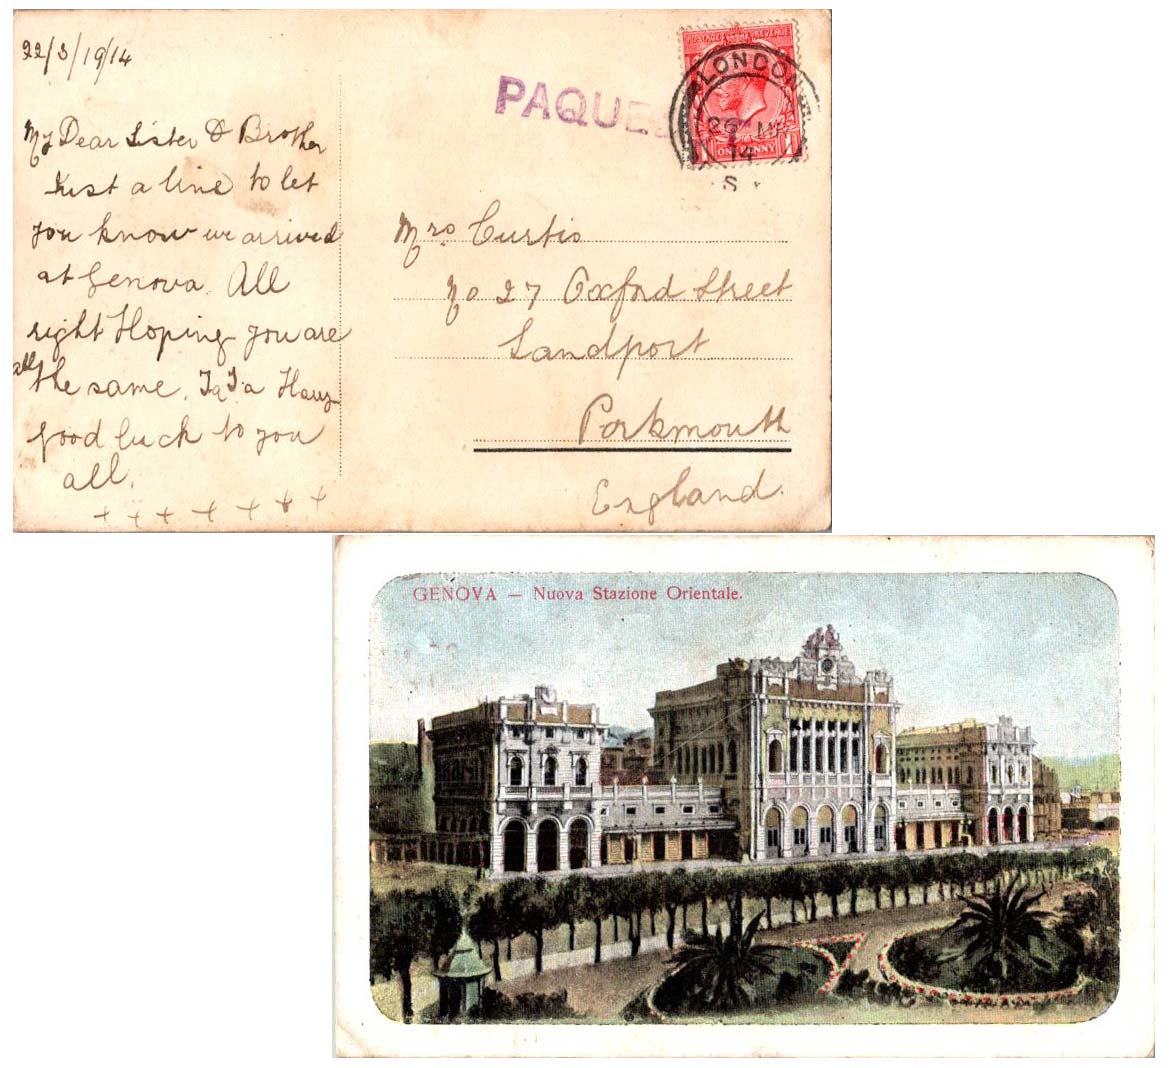 22/3/1914
My Dear Sister & Brother
Just a line to let
you know we arrived
at Genova. All
right Hoping you are
all the same. Ta Ta
good luck to you
all.
+ + + + + + +
PAQUE
POSTAGE REVENUE
LONDON
26 MR
14
S
ONE PENNY
1 1
Mrs Curtis
No 27 Oxford Street
Landport
Portsmouth
England.
GENOVA — Nuova Stazione Orientale.